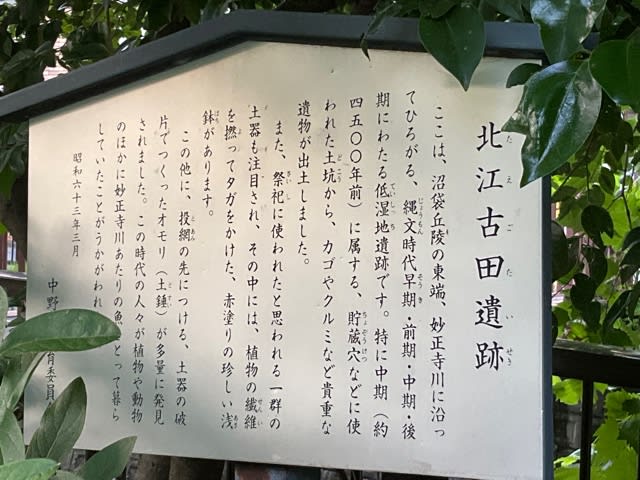 北江古田遺跡
ここは、沼袋丘陵の東端、妙正寺川に沿っ
てひろがる、縄文時代早期・前期・中期・後
期にわたる低湿地遺跡です。特に中期（約
四五〇〇年前）に属する、貯蔵穴などに使
われた土坑から、カゴやクルミなど貴重な
遺物が出土しました。
また、祭祀に使われたと思われる一群の
土器も注目され、その中には、植物の繊維
を撚ってタガをかけた、赤塗りの珍しい浅
鉢があります。
この他に、投網の先につける、土器の破
片でつくったオモリ（土錘）が多量に発見
されました。この時代の人々が植物や動物
のほかに妙正寺川あたりの魚 とって暮ら
していたことがうかがわれ
昭和六十三年三月
中野 育委員